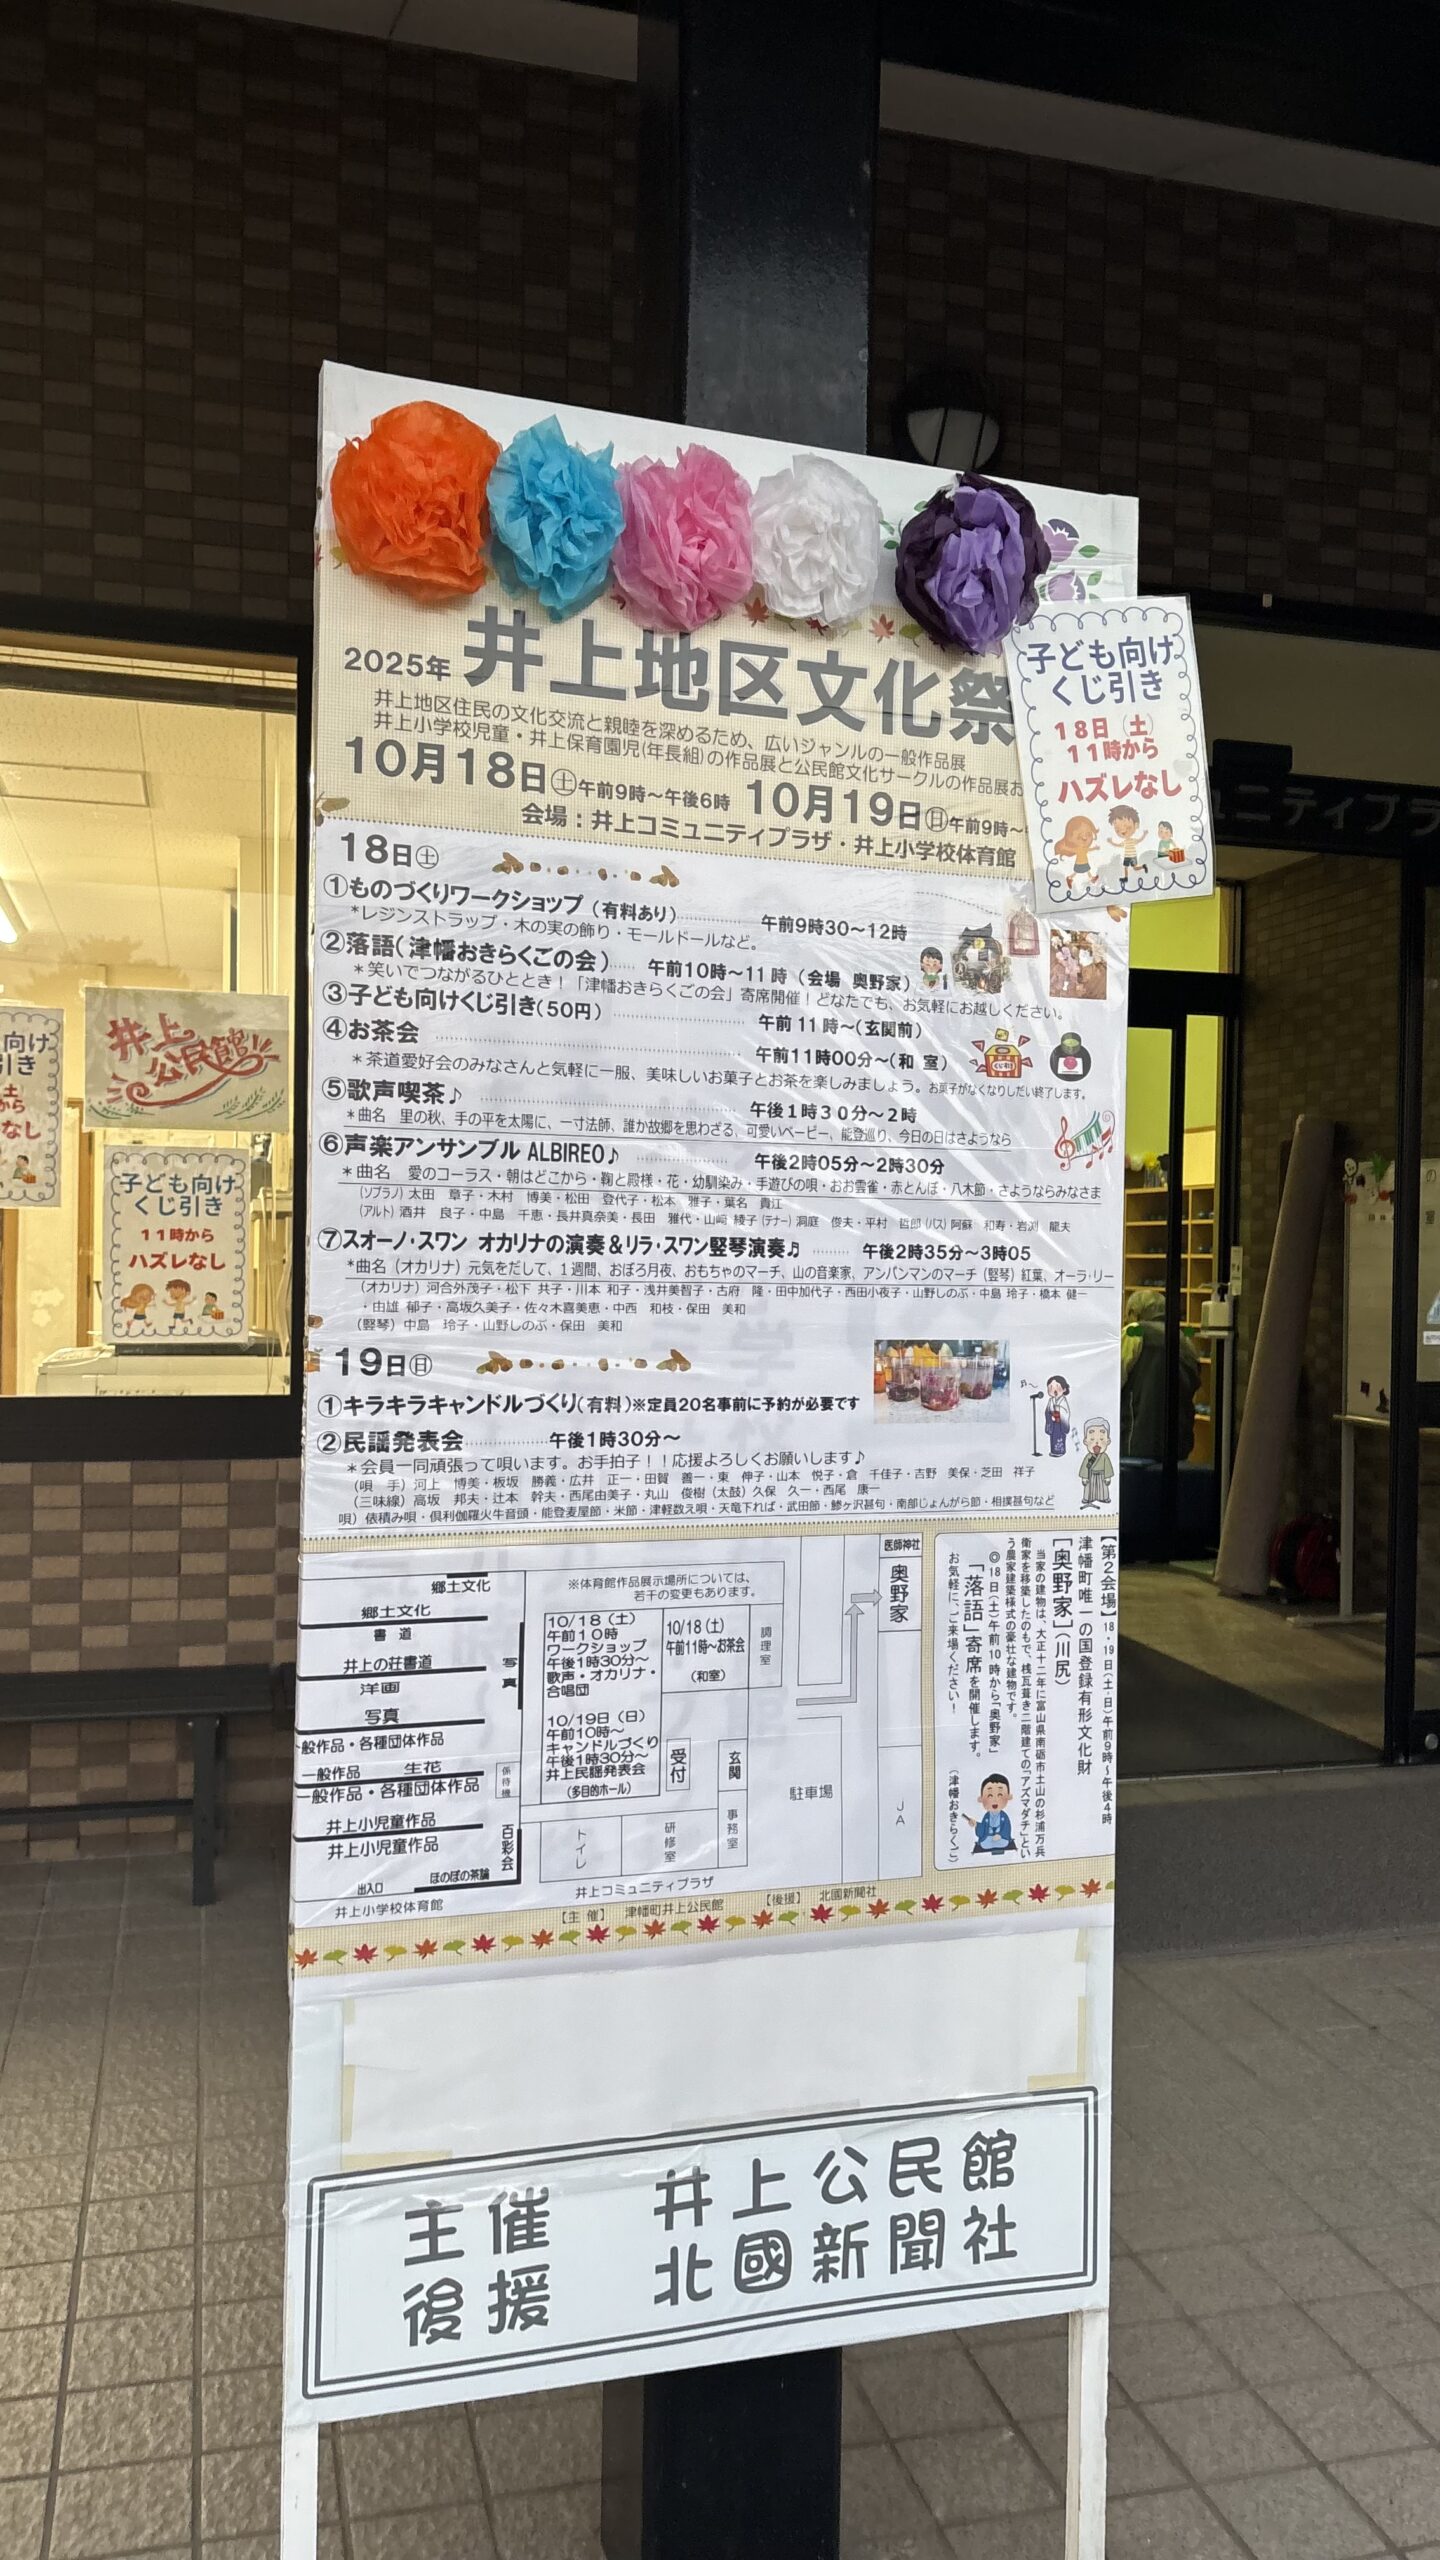 2025年 井上地区文化祭
井上地区住民の文化交流と親睦を深めるため、広いジャンルの一般作品展
井上小学校児童・井上保育園児(年長組)の作品展と公民館文化サークルの作品展お
10月18日㊏午前9時〜午後6時 10月19日㊐午前9時〜
会場：井上コミュニティプラザ・井上小学校体育館
子ども向け
くじ引き
18日（土）
11時から
ハズレなし
18日㊏
①ものづくりワークショップ（有料あり） 午前9時30〜12時
＊レジンストラップ・木の実の飾り・モールドールなど。
②落語（津幡おきらくごの会） 午前10時〜11時（会場 奥野家）
＊笑いでつながるひととき！「津幡おきらくごの会」寄席開催！どなたでも、お気軽にお越しください。
③子ども向けくじ引き(50円) 午前11時〜(玄関前)
④お茶会 午前11時00分〜(和 室)
＊茶道愛好会のみなさんと気軽に一服、美味しいお菓子とお茶を楽しみましょう。お菓子がなくなりしだい終了します。
⑤歌声喫茶♪ 午後1時30分〜2時
＊曲名 里の秋、手の平を太陽に、一寸法師、誰か故郷を思わざる、可愛いベービー、能登巡り、今日の日はさようなら
⑥声楽アンサンブル ALBIREO♪ 午後2時05分〜2時30分
＊曲名 愛のコーラス・朝はどこから・鞠と殿様・花・幼馴染み・手遊びの唄・おお雲雀・赤とんぼ・八木節・さようならみなさま
（ソプラノ）太田 章子・木村 博美・松田 登代子・松本 雅子・葉名 貴江
（アルト）酒井 良子・中島 千恵・長井真奈美・長田 雅代・山﨑 綾子（テナー）洞庭 俊夫・平村 哲郎（バス）阿蘇 和寿・岩渕 龍夫
⑦スオーノ・スワン オカリナの演奏＆リラ・スワン竪琴演奏♬ 午後2時35分〜3時05
＊曲名（オカリナ）元気をだして、1週間、おぼろ月夜、おもちゃのマーチ、山の音楽家、アンパンマンのマーチ（竪琴）紅葉、オーラ・リー
（オカリナ）河合外茂子・松下 共子・川本 和子・浅井美智子・古府 隆・田中加代子・西田小夜子・山野しのぶ・中島 玲子・橋本 健一
・由雄 郁子・高坂久美子・佐々木喜美恵・中西 和枝・保田 美和
（竪琴）中島 玲子・山野しのぶ・保田 美和
19日㊐
①キラキラキャンドルづくり(有料)※定員20名事前に予約が必要です
②民謡発表会 午後1時30分〜
＊会員一同頑張って唄います。お手拍子！！応援よろしくお願いします♪
（唄 手）河上 博美・板坂 勝義・広井 正一・田賀 善一・東 伸子・山本 悦子・倉 千佳子・吉野 美保・芝田 祥子
（三味線）高坂 邦夫・辻本 幹夫・西尾由美子・丸山 俊樹（太鼓）久保 久一・西尾 康一
唄）俵積み唄・倶利伽羅火牛音頭・能登麦屋節・米節・津軽数え唄・天竜下れば・武田節・鯵ヶ沢甚句・南部じょんがら節・相撲甚句など
郷土文化
郷土文化
書 道
井上の荘書道
洋画
写真
写真
一般作品・各種団体作品
一般作品 生花
一般作品・各種団体作品
井上小児童作品
井上小児童作品
百彩会
ほのぼの茶論
出入口
井上小学校体育館
※体育館作品展示場所については、
若干の変更もあります。
10/18（土）
午前10時
ワークショップ
午後1時30分〜
歌声・オカリナ・
合唱団
10/19日（日）
午前10時〜
キャンドルづくり
午後1時30分〜
井上民謡発表会
(多目的ホール)
10/18（土）
午前11時〜お茶会
（和室）
調理室
受付
玄関
トイレ
研修室
事務室
井上コミュニティプラザ
医師神社
奥野家
駐車場
JA
【第2会場】18・19日(土・日)午前9時〜午後4時
津幡町唯一の国登録有形文化財
［奥野家］（川尻）
当家の建物は、大正十二年に富山県南砺市土山の杉浦万兵
衛家を移築したもので、桟瓦葺き二階建ての「アズマダチ」とい
う農家建築様式の豪壮な建物です。
◎18日(土)午前10時から「奥野家」
「落語」寄席を開催します。
お気軽に、ご来場ください！
（津幡おきらくご）
【主 催】 津幡町井上公民館 【後援】 北國新聞社
主催 井上公民館
後援 北國新聞社
井上
公民館
子ども向け
くじ引き
11時から
ハズレなし